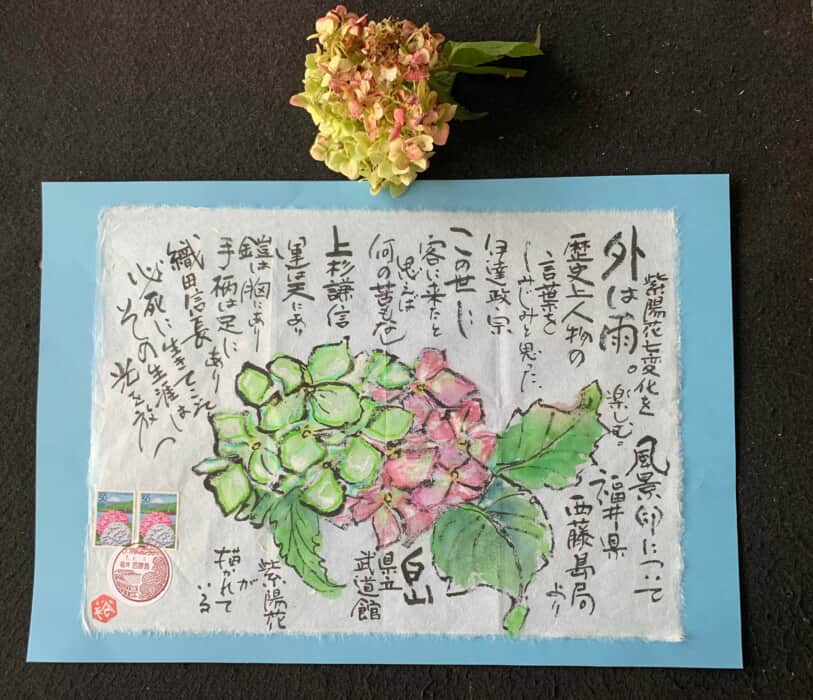 紫陽花七変化を
楽しむ。
外は雨。
歴史上人物の
言葉を
しみじみと思った
伊達政宗
この世に
客に来たと
思えば
何の苦もなし
上杉謙信
運は天にあり
鎧は胸にあり
手柄は足に
あり
織田信長
必死に生きてこそ
その生涯は
光を放つ
風景印について
福井県
西藤島局
より
白山
県立
武道館
紫陽花
が
描かれて
いる
50
50